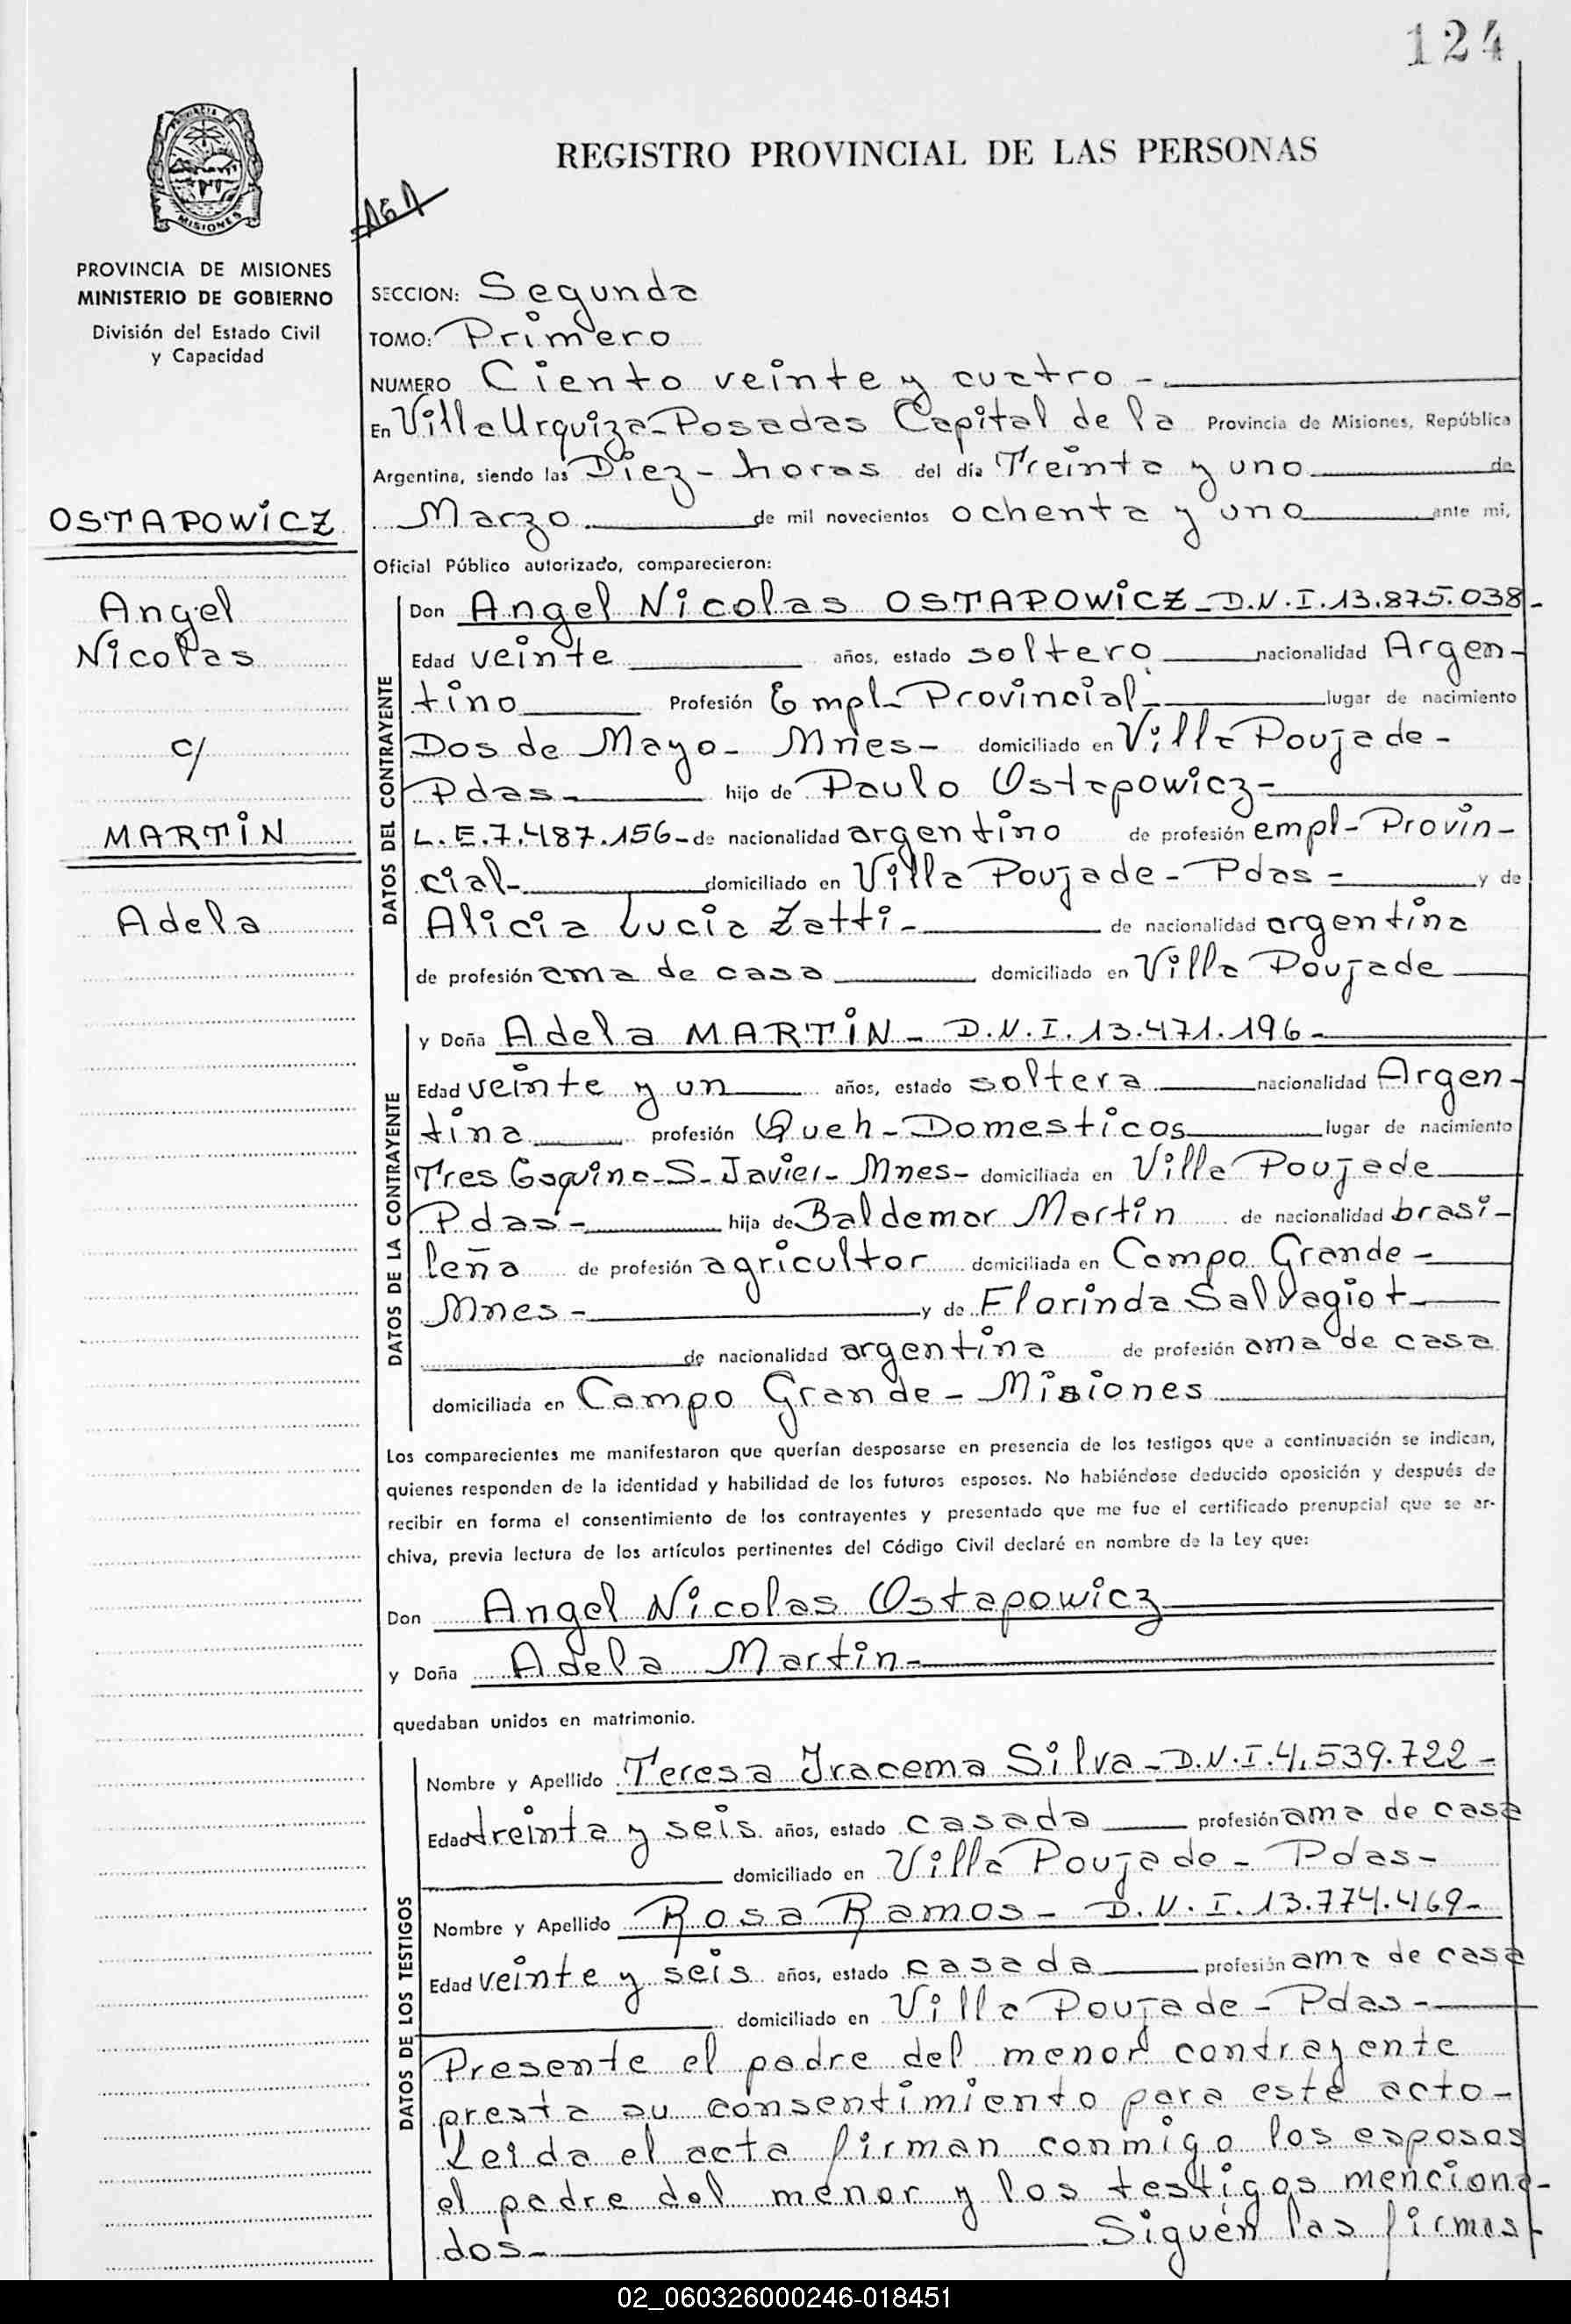 124
PROVINCIA DE
MISIONES
PROVINCIA DE MISIONES
MINISTERIO DE GOBIERNO
División del Estado Civil
y Capacidad
OSTAPOWICZ
Angel
Nicolas
c/
MARTIN
Adela
REGISTRO PROVINCIAL DE LAS PERSONAS
SECCION: Segunda
TOMO: Primero
NUMERO Ciento veinte y cuatro -
En Villa Urquiza - Posadas Capital de la Provincia de Misiones, República
Argentina, siendo las Diez - horas del día Treinta y uno de
Marzo de mil novecientos ochenta y uno ante mi,
Oficial Público autorizado, comparecieron:
DATOS DEL CONTRAYENTE
Don Angel Nicolas OSTAPOWICZ - D.N.I. 13.875.038 -
Edad veinte años, estado soltero nacionalidad Argen-
tino Profesión Empl- Provincial - lugar de nacimiento
Dos de Mayo - Mnes - domiciliado en Villa Poujade -
Pdas - hijo de Paulo Ostapowicz -
L.E. 7.487.156 - de nacionalidad argentino de profesión empl- Provin-
cial - domiciliado en Villa Poujade - Pdas - y de
Alicia Lucia Zatti - de nacionalidad argentina
de profesión ama de casa domiciliado en Villa Poujade
DATOS DE LA CONTRAYENTE
y Doña Adela MARTIN - D.N.I. 13.471.196 -
Edad veinte y un años, estado soltera nacionalidad Argen-
tina profesión Queh - Domesticos lugar de nacimiento
Tres Esquina - S - Javier - Mnes - domiciliada en Villa Poujade
Pdas - hija de Baldemar Martin de nacionalidad brasi-
leña de profesión agricultor domiciliada en Campo Grande -
Mnes - y de Florinda Salvagiot
de nacionalidad argentina de profesión ama de casa
domiciliada en Campo Grande - Misiones
Los comparecientes me manifestaron que querían desposarse en presencia de los testigos que a continuación se indican,
quienes responden de la identidad y habilidad de los futuros esposos. No habiéndose deducido oposición y después de
recibir en forma el consentimiento de los contrayentes y presentado que me fue el certificado prenupcial que se ar-
chiva, previa lectura de los artículos pertinentes del Código Civil declaré en nombre de la Ley que:
Don Angel Nicolas Ostapowicz
y Doña Adela Martin -
quedaban unidos en matrimonio.
DATOS DE LOS TESTIGOS
Nombre y Apellido Teresa Iracema Silva - D.N.I. 4.539.722 -
Edad treinta y seis años, estado casada profesión ama de casa
domiciliado en Villa Poujade - Pdas -
Nombre y Apellido Rosa Ramos - D.N.I. 13.774.469 -
Edad veinte y seis años, estado casada profesión ama de casa
domiciliado en Villa Poujade - Pdas -
Presente el padre del menor contrayente
presta su consentimiento para este acto -
Leida el acta firman conmigo los esposos
el padre del menor y los testigos menciona-
dos - Siguen las firmas -
02_060326000246-018451